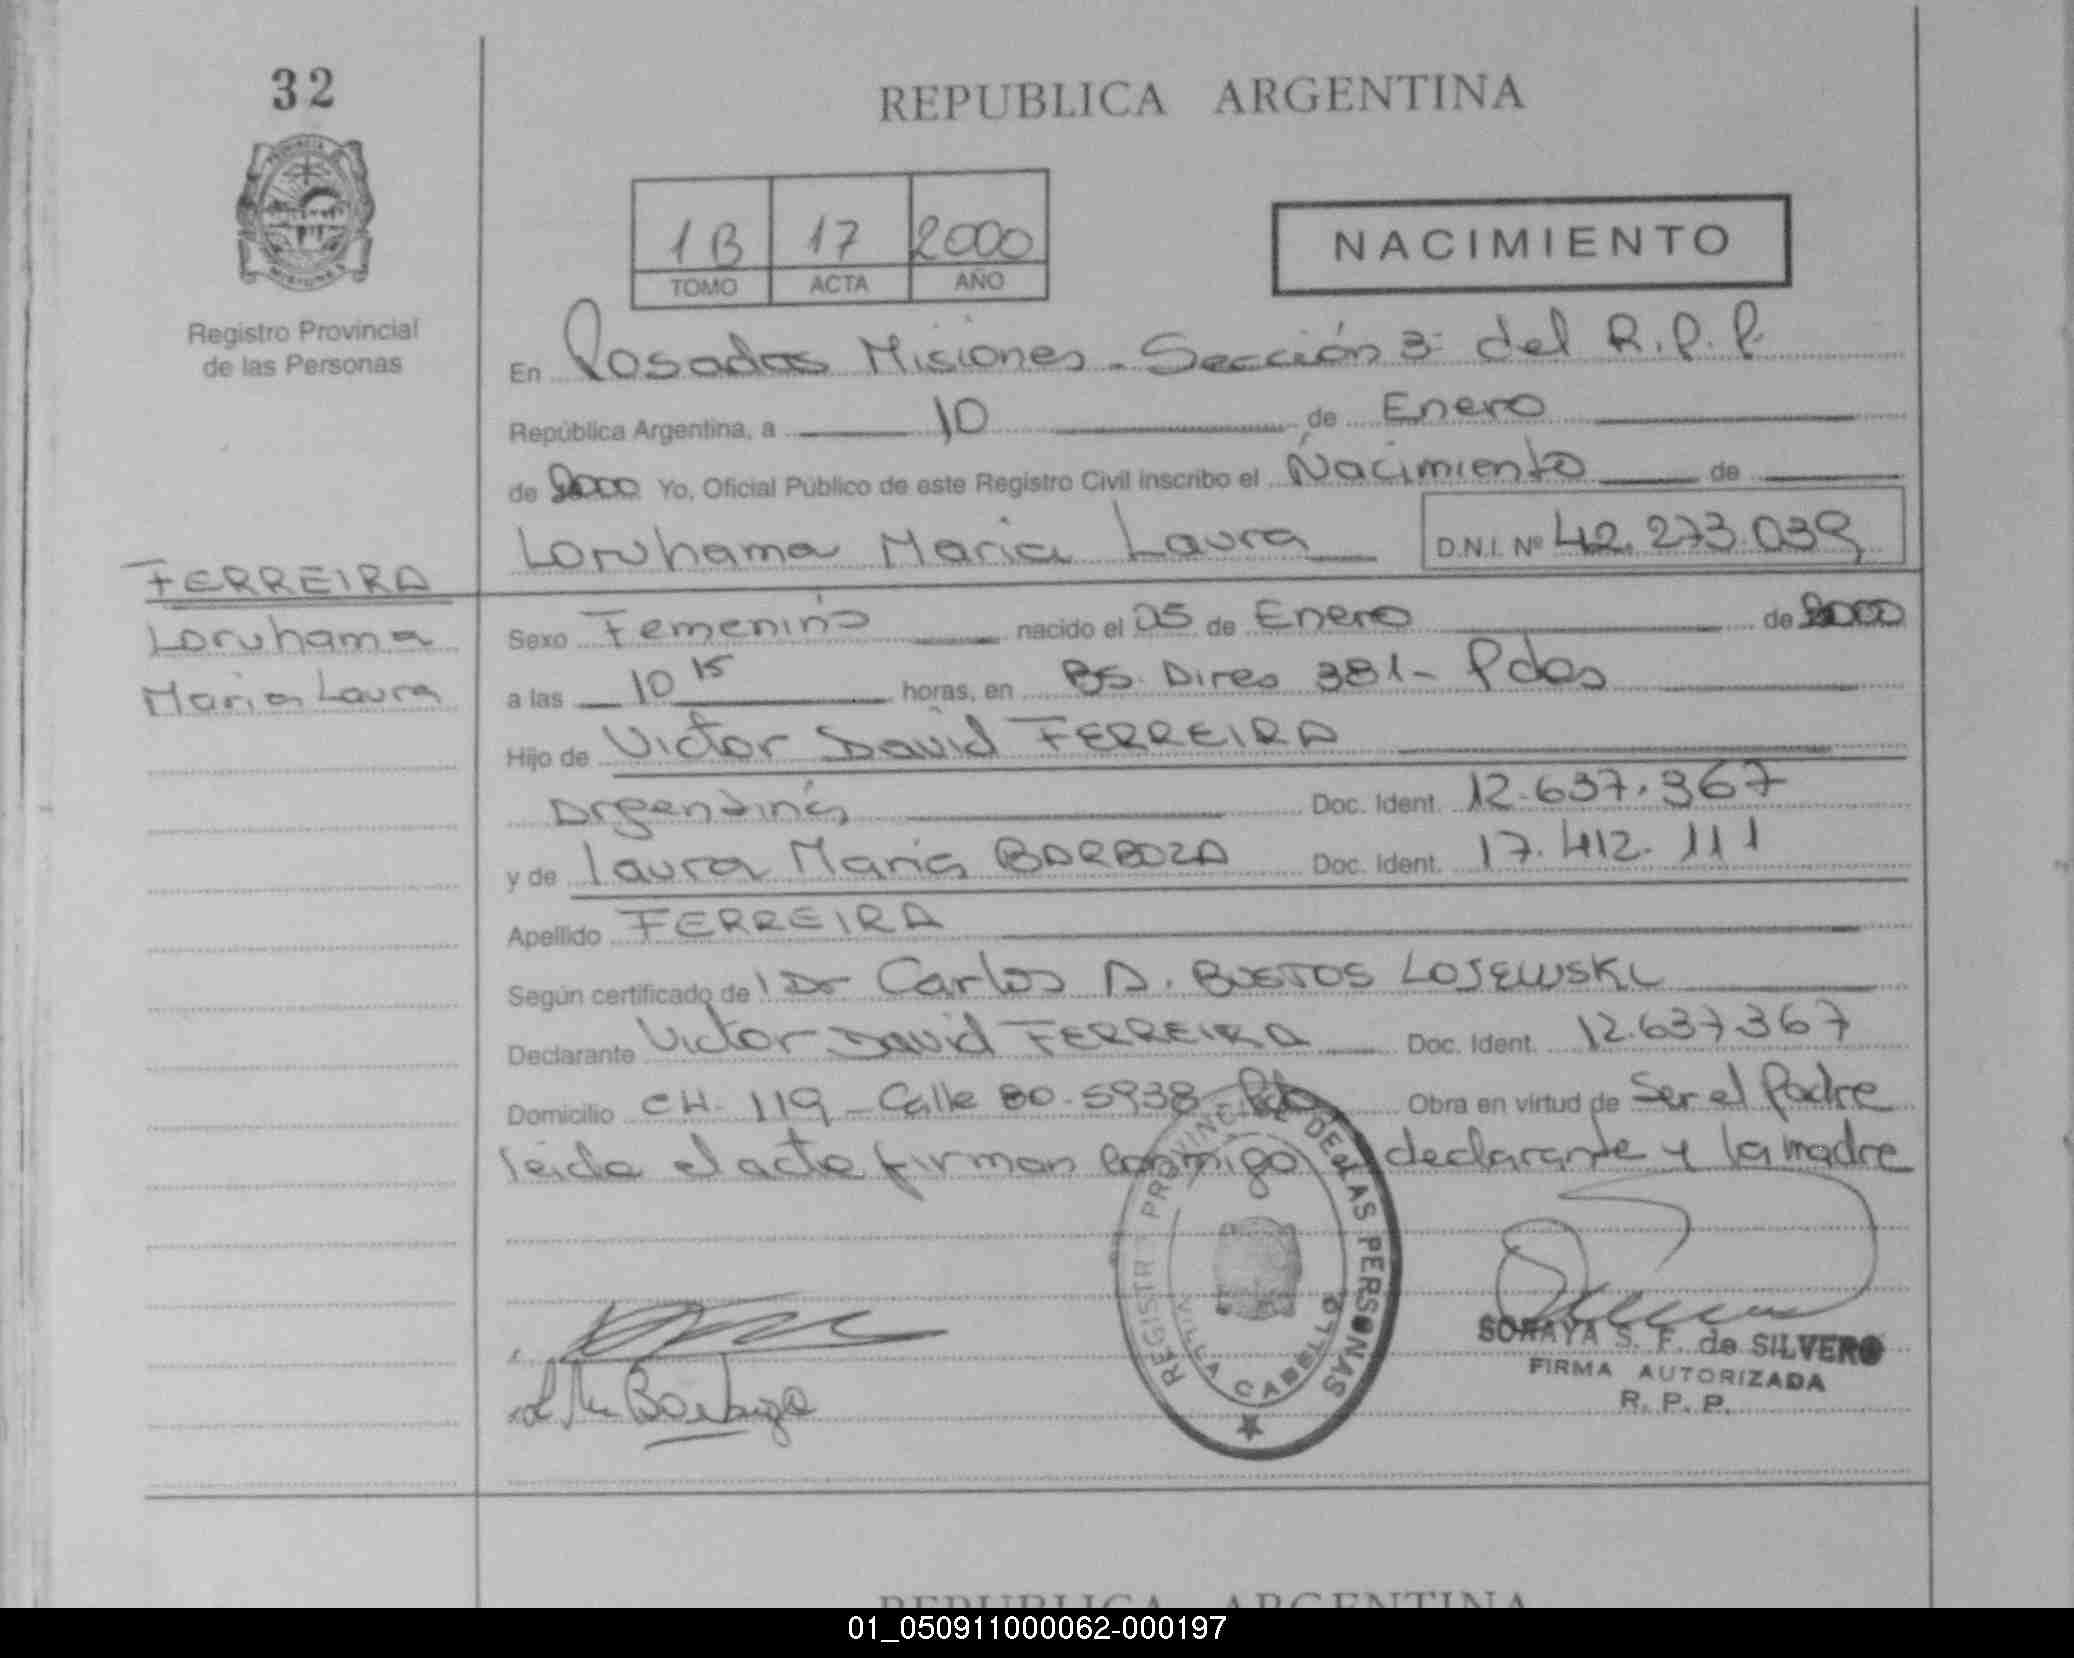 32
REPUBLICA ARGENTINA
1B 17 2000
TOMO ACTA AÑO
NACIMIENTO
Registro Provincial
de las Personas
En Posadas Misiones - Sección 3ª del R.P.P.
República Argentina, a 10 de Enero
de 2000 Yo, Oficial Público de este Registro Civil inscribo el Nacimiento de
Loruhama Maria Laura D.N.I. Nº 42.273.039
FERREIRA
Loruhama
Maria Laura
Sexo Femenino nacido el 05 de Enero de 2000
a las 10 15 horas, en Bs. Aires 381 - Pdas
Hijo de Victor David FERREIRA
Argentina Doc. Ident. 12.637.367
y de Laura Maria BARBOZA Doc. Ident. 17.412.111
Apellido FERREIRA
Según certificado de Dr Carlos A. BUSTOS LOSEWSKI
Declarante Victor David FERREIRA Doc. Ident. 12.637.367
Domicilio CH. 119 - Calle 80 - 5938 Pdas Obra en virtud de Ser el Padre
leida el acta firman conmigo el declarante y la madre
REGISTRO PROVINCIAL DE LAS PERSONAS
VILLA CABELLO
Barboza
SORAYA S. F. de SILVERO
FIRMA AUTORIZADA
R. P. P.
REPUBLICA ARGENTINA
01_050911000062-000197